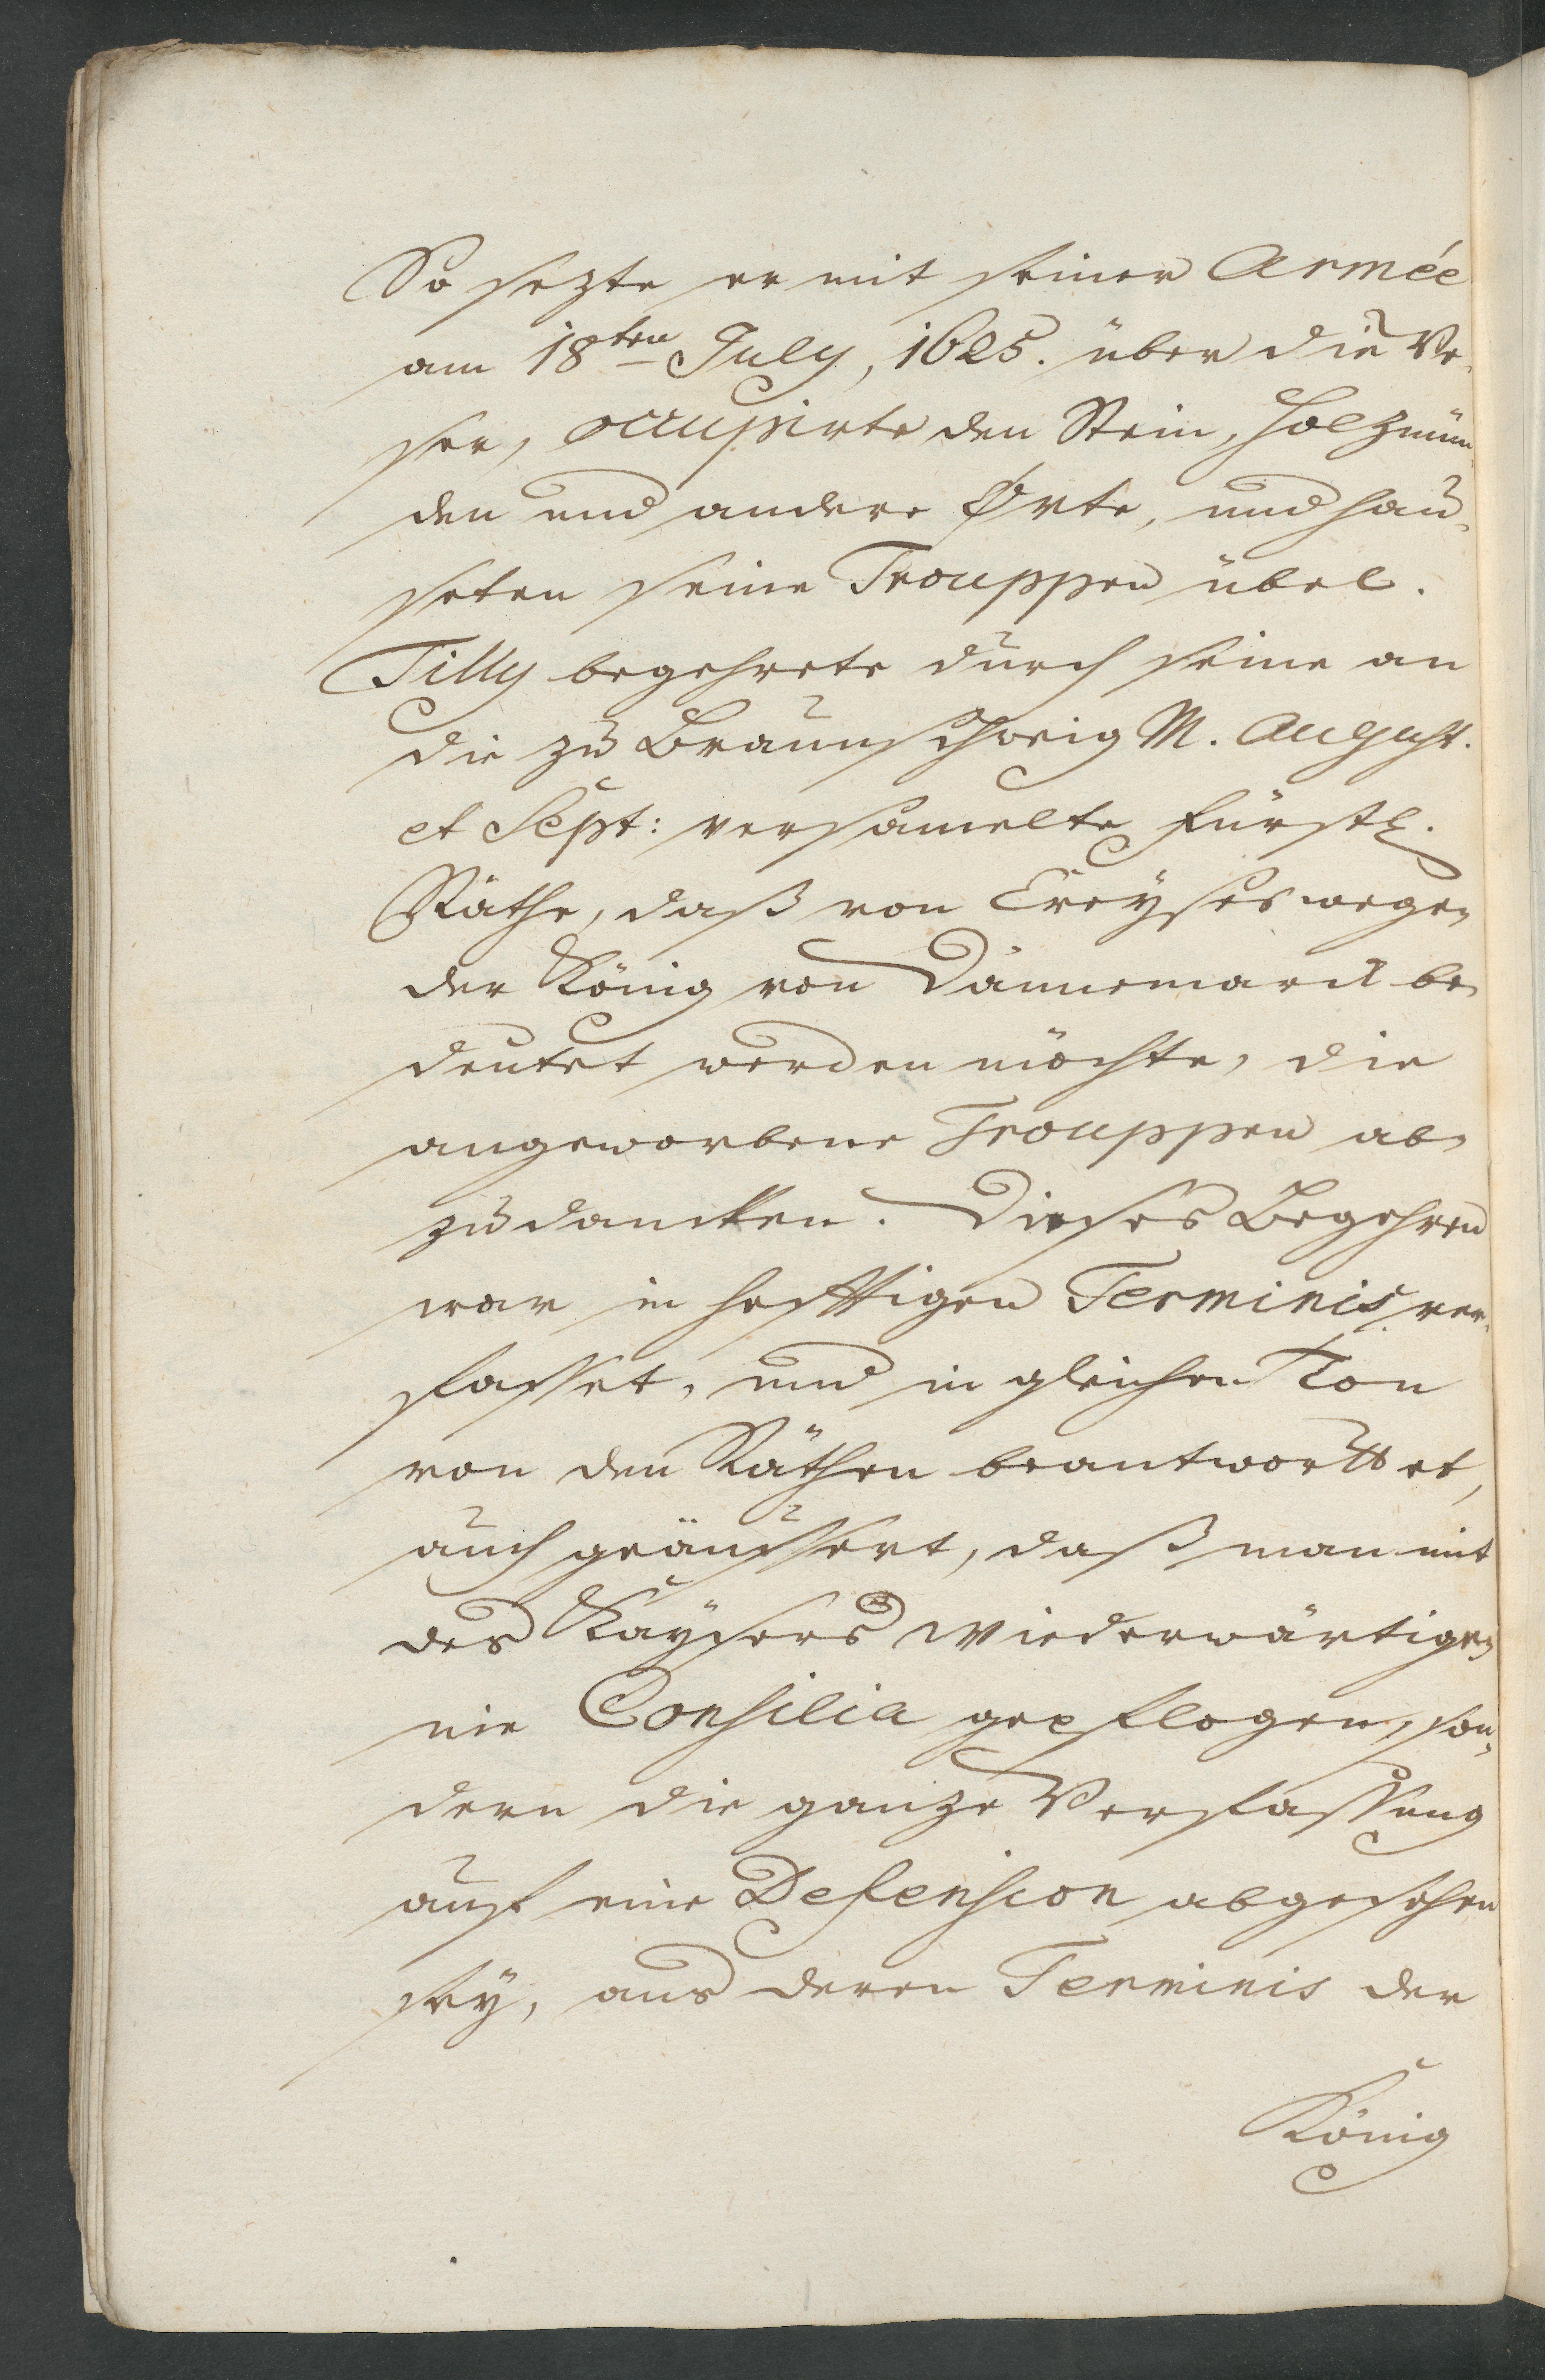 So sezte er mit seiner Armée
am 18ten July, 1625. über die We-
ser, occupirte den Stein, Holzmün-
den und andere Orte, und hau-
seten seine Trouppen übel.
Tilly begehrete durch seine an
die zu Braunschweig M. August.
et Sept: versamelte Fürstl.
Räthe, daß von Creyses wegen
der König von Dännemarck be-
deutet werden möchte, die
angeworbene Trouppen ab-
zudancken. Dieses Begehren
war in hefftigen Terminis ver-
fasset, und in gleichen Ton
von den Räthen beantworttet,
auch geäussert, daß man mit
des Kaysers Wiederwärtigen
nie Consilia gepflogen, son-
dern die ganze Verfassung
auf eine Defension abgesehen
sey, aus deren Terminis der
König